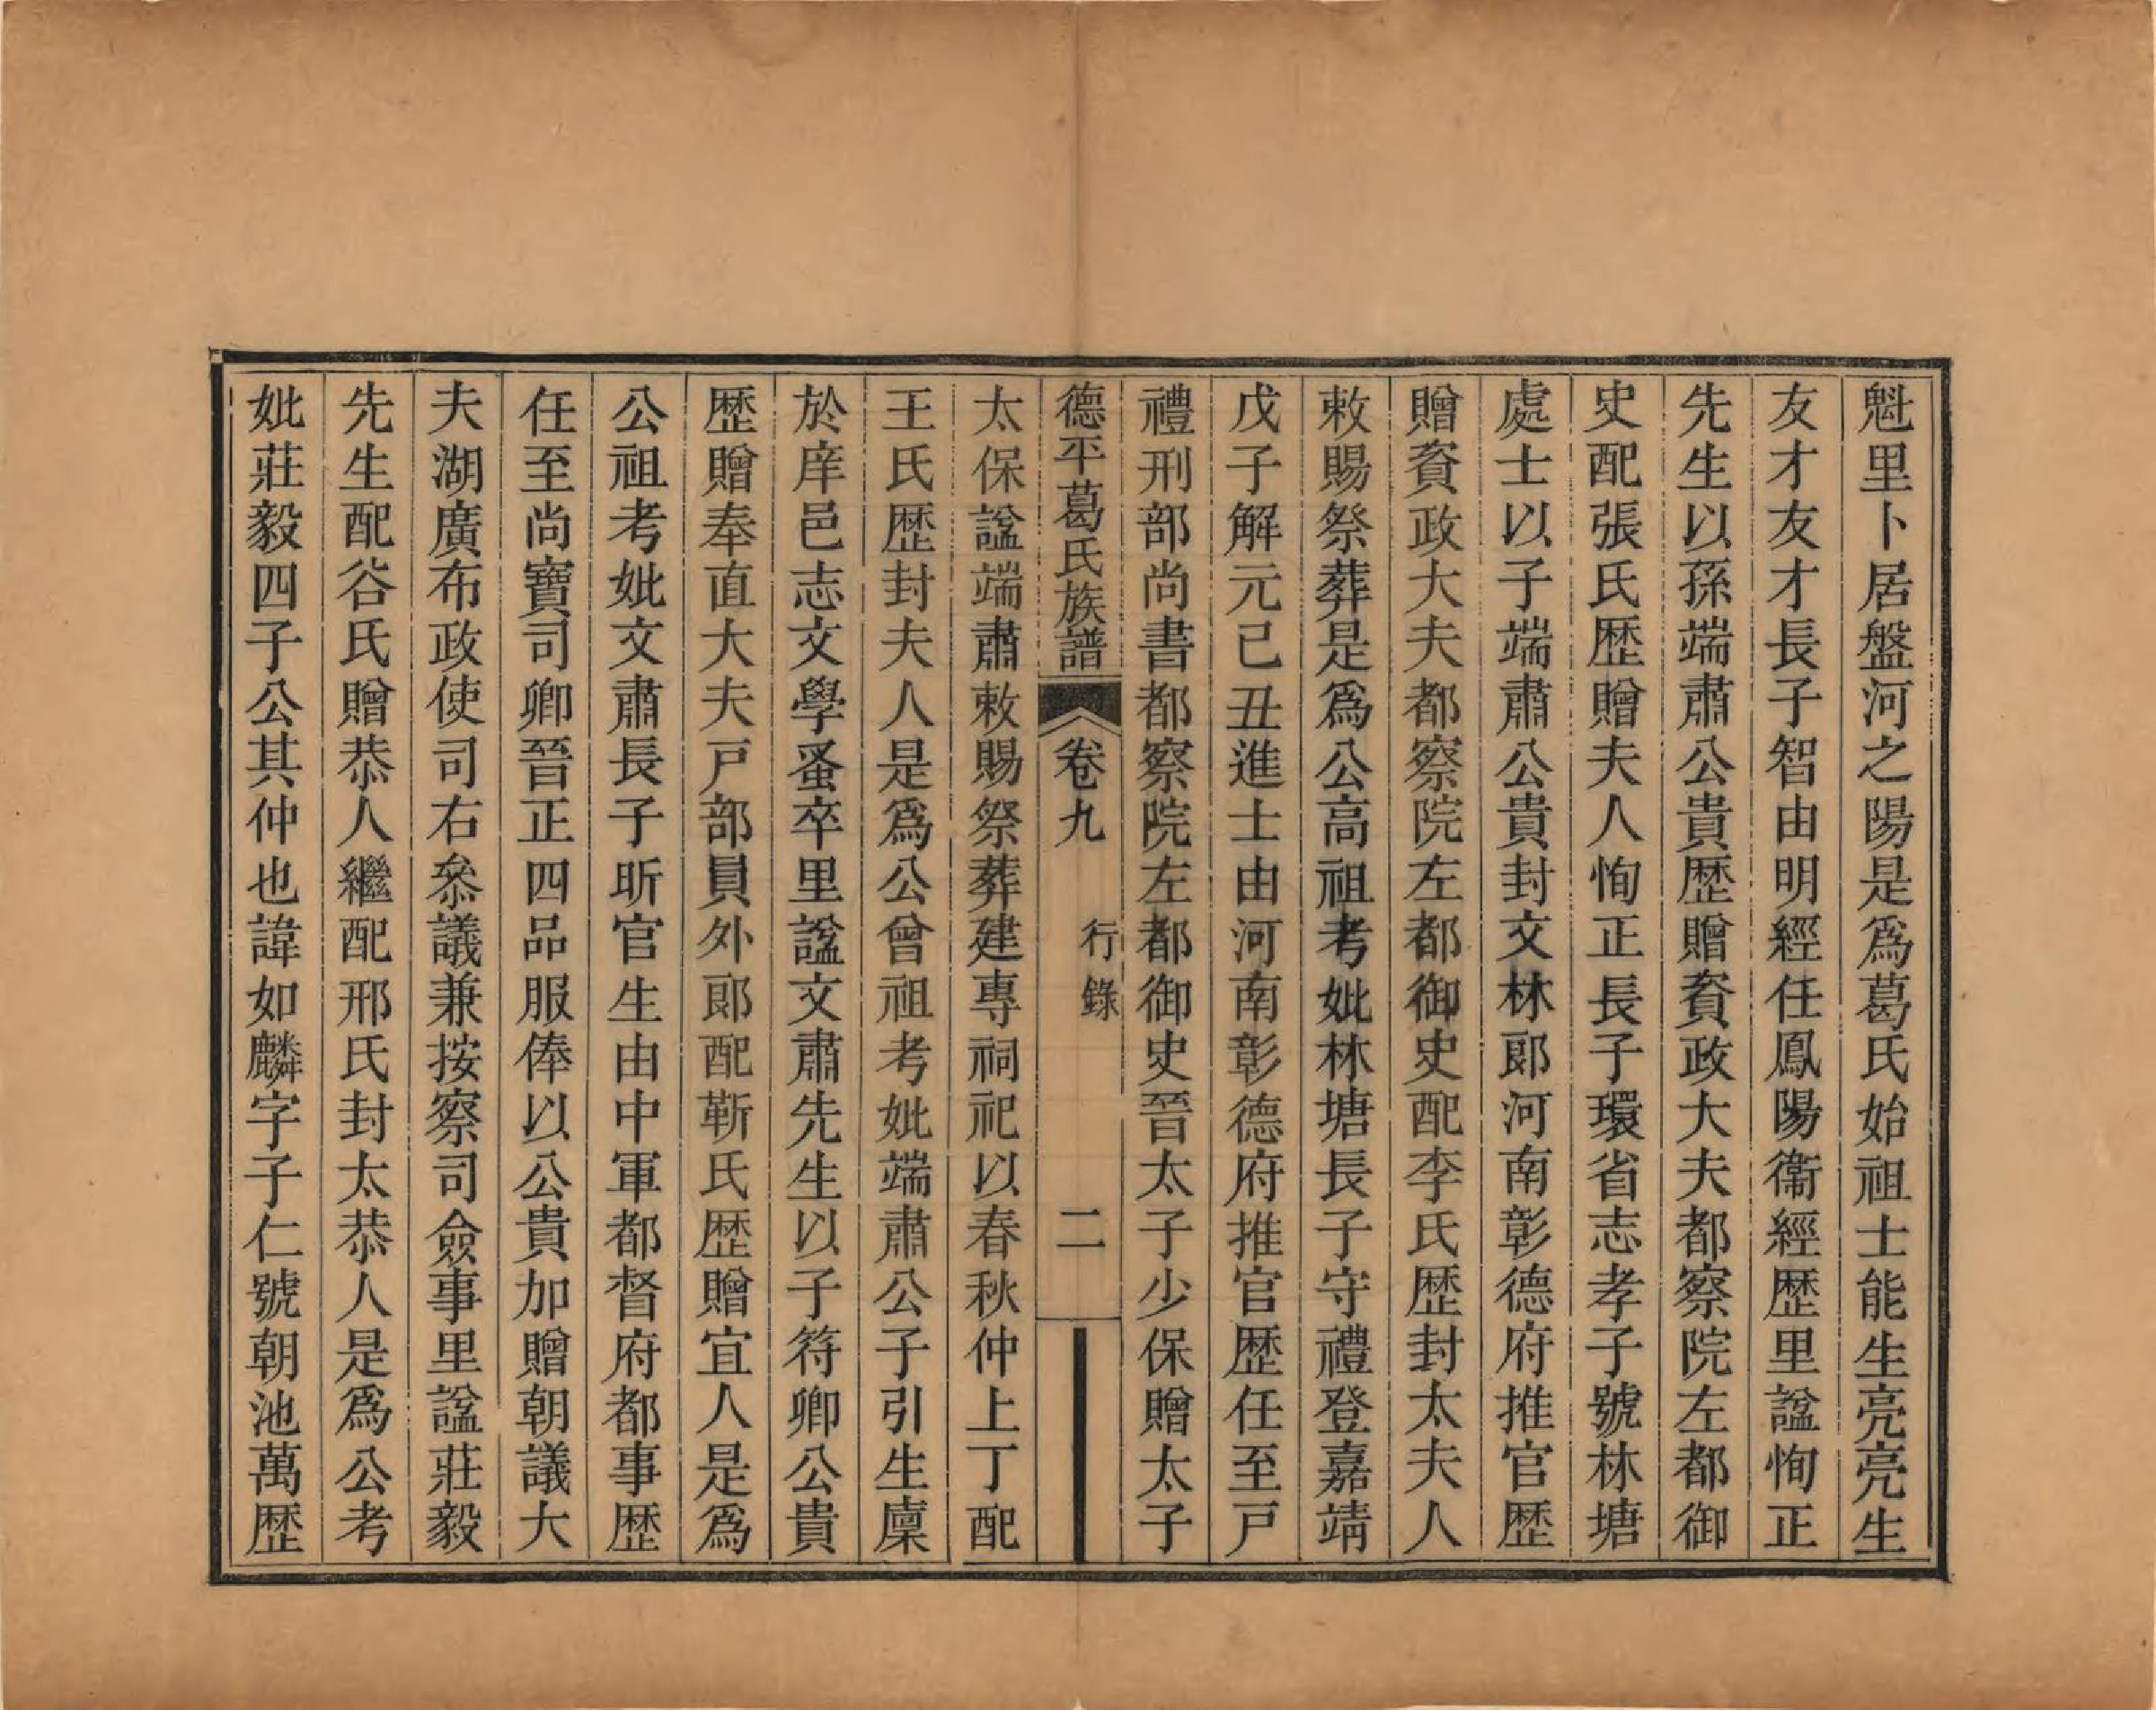 魁里卜居盤河之陽是爲葛氏始祖士能生亮亮生
友才友才長子智由明經任鳳陽衞經歷里諡恂正
先生以孫端肅公貴歷贈資政大夫都察院左都御
史配張氏歷贈夫人恂正長子環省志孝子號林塘
處士以子端肅公貴封文林郎河南彰德府推官歷
贈資政大夫都察院左都御史配李氏歷封太夫人
敕賜祭葬是爲公高祖考妣林塘長子守禮登嘉靖
戊子解元己丑進士由河南彰德府推官歷任至戸
禮刑部尚書都察院左都御史晉太子少保贈太子
德平葛氏族譜 卷九 行錄 二
太保諡端肅敕賜祭葬建專祠祀以春秋仲上丁配
王氏歷封夫人是爲公曾祖考妣端肅公子引生廩
於庠邑志文學蚤卒里諡文肅先生以子符卿公貴
歷贈奉直大夫戸部員外郎配靳氏歷贈宜人是爲
公祖考妣文肅長子昕官生由中軍都督府都事歷
任至尚寶司卿晉正四品服俸以公貴加贈朝議大
夫湖廣布政使司右叅議兼按察司僉事里諡莊毅
先生配谷氏贈恭人繼配邢氏封太恭人是爲公考
妣莊毅四子公其仲也諱如麟字子仁號朝池萬歷